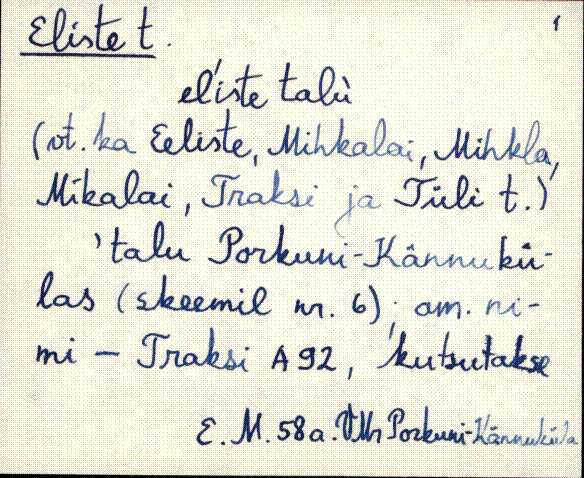 Eliste t. 1
el'iste talù
(vt. ka Eeliste, Mihkalai, Mihkla,
Mikalai, Traksi ja Tüli t.)
'talu Porkuni-Kännukü-
las (skeemil nr. 6); am. ni-
mi – Traksi A 92, kutsutakse
E. M. 58a. VMr Porkuni-Kännuküla